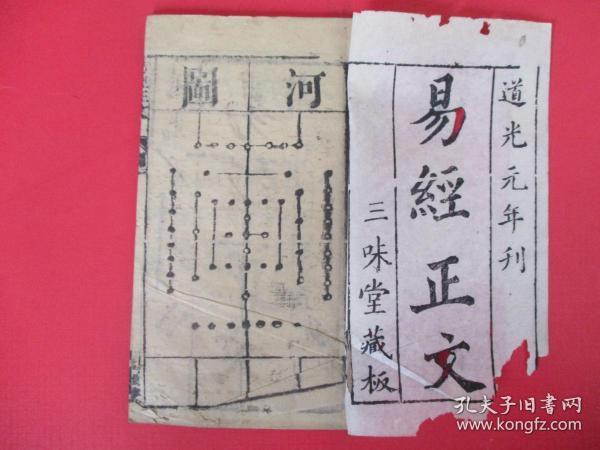 道光元年刊
易經正文
三味堂藏板
河圖
孔夫子旧书网
www.kongfz.com